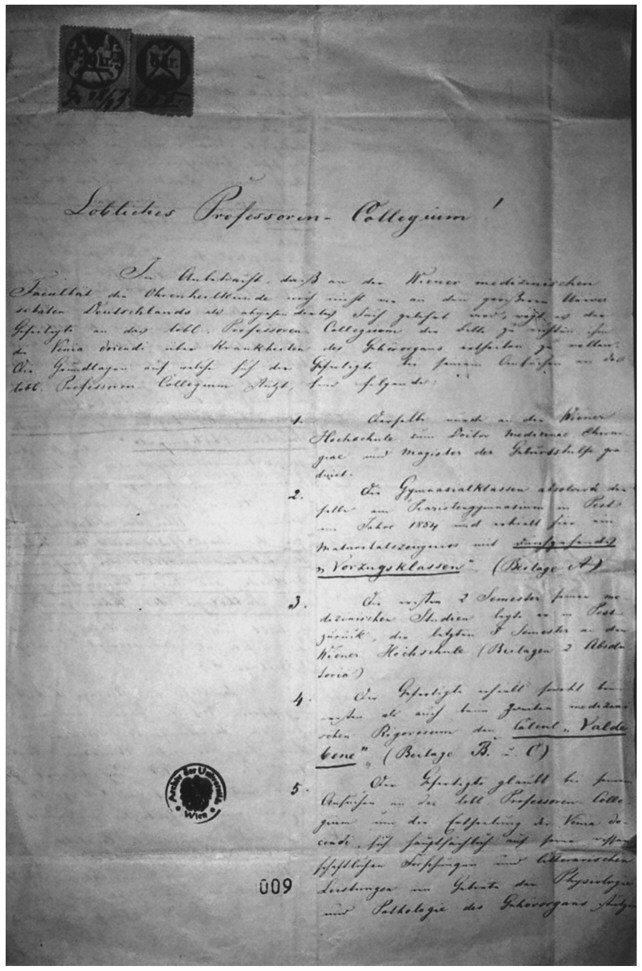 Löbliches Professoren-Collegium!
In Anbetracht, daß an der Wiener medizinischen
Facultät die Ohrenheilkunde noch nicht wie an den größeren Univer
sitäten Deutschlands als abgesondertes Fach gelehrt wird, wagt es der
Gefertigte an das löbl. Professoren Collegium die Bitte zu richten ihm
die Venia docendi über Krankheiten des Gehörorgans ertheilen zu wollen.
Die Grundlagen auf welche sich der Gefertigte bei seinem Ansuchen an das
löbl. Professoren-Collegium stützt, sind folgende:
1. Derselbe wurde an der Wiener
Hochschule zum Doctor Medicinae Chirur
giae und Magister der Geburtshilfe pro
2. Die Gymnasialklassen absolvirte der
selbe am Piaristengymnasium in Pest
im Jahre 1854 und erhielt hier ein
Maturitätszeugniss mit durchgehends
„Vorzugsklassen" (Beilage A)
3. Die ersten 2 Semester seiner me
dizinischen Studien legte er in Pest
zurück, die letzten 8 Semester an der
Wiener Hochschule (Beilagen 2 Absolu
toria)
4. Der Gefertigte erhielt sowohl beim
ersten als auch beim zweiten medizini
schen Rigorosum den Calcul „Valde
bene" (Beilage B. u. C)
5. Der Gefertigte glaubt bei seinem
Ansuchen an das löbl. Professoren Colle
gium um die Ertheilung der Venia do
cendi, sich hauptsächlich auf seine wissen
schaftlichen Forschungen und litterarischen
Leistungen im Gebiete der Physiologie
und Pathologie des Gehörorgans stützen
Archiv der Universität
Wien
009